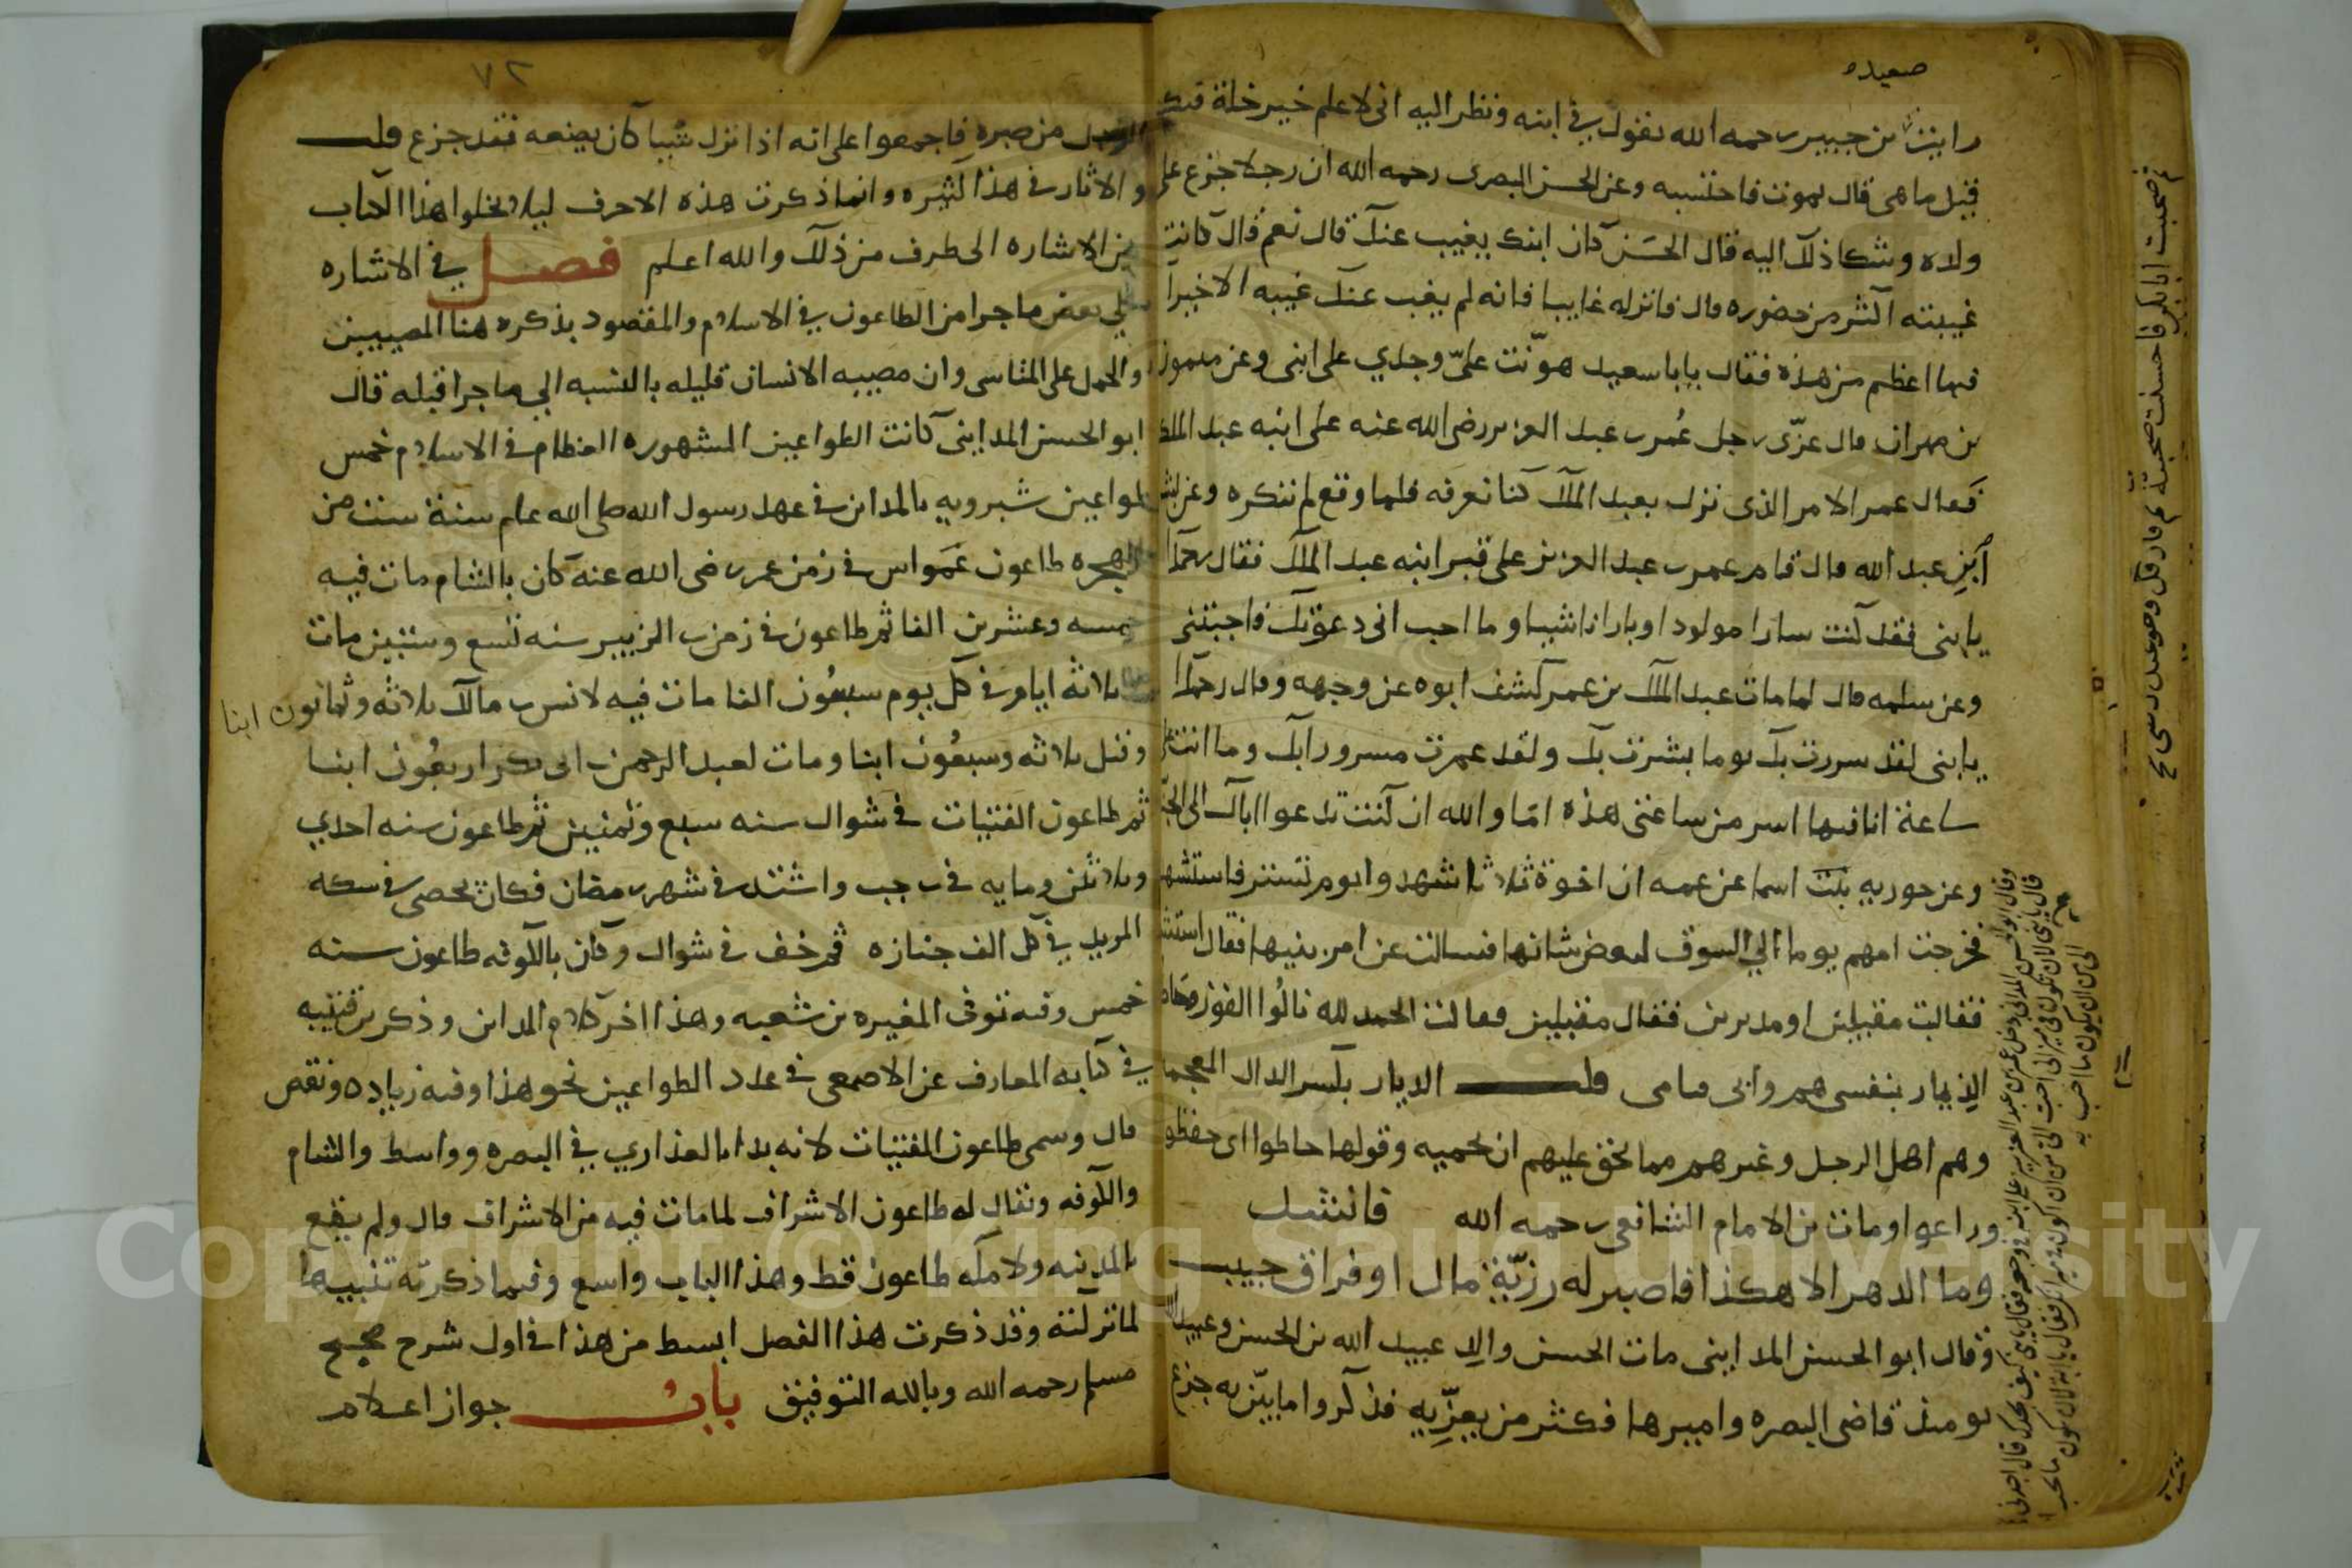 رايت بن جبير رحمه الله يقول في ابنه ونظر اليه اني لاعلم خير خلة فيك
قيل ما هي قال يموت فاحتسبه وعن الحسن البصرى رحمه الله ان رجلا جزع على
ولده وشكا ذلك اليه قال الحسن كان ابنك يغيب عنك قال نعم قال كانت
غيبته اكثر من حضوره قال فانزله غايبا فانه لم يغب عنك غيبه الا خيرا
فيها اعظم من هذه فقال يابا سعيد هونت على وجدي على ابنى وعن ميمون
بن مهران قال عزى رجل عمر بن عبد العزيز رضى الله عنه على ابنه عبد الملك
فقال عمر الامر الذى نزل بعبد الملك كنا نعرفه فلما وقع لم ننكره وعن بشر
ابن عبد الله قال قام عمر بن عبد العزيز على قبر ابنه عبد الملك فقال رحمك
يا بنى فقد كنت سارا مولودا وبارا ناشيا وما احب انى دعوتك فاجبتنى
وعن سلمه قال لما مات عبد الملك بن عمر كشف ابوه عن وجهه وقال رحمك
يا بنى لقد سررت بك يوم بشرت بك ولقد عمرت مسرورا بك وما اتت على
ساعة انا فيها اسر من ساعتى هذه اما والله ان كنت تدعوا اباك الى الجنة
وعن جوريه بنت اسما عن عمه ان اخوة ثلاثا شهدوا يوم تستر فاستشهدوا
فخرجت امهم يوما الي السوق لبعض شانها فسالت عن امر بنيها فقال استشهدوا
فقالت مقبلين او مدبرين فقال مقبلين فقالت الحمد لله نالوا الفوز وحاطوا
الذمار بنفسى هم وابى وامى قلت الذمار بكسر الذال المعجمة
وهم اهل الرجل وغيرهم مما يحق عليهم ان يحميه وقولها حاطوا اى حفظوا
وراعوا ومات بن الامام الشافعى رحمه الله فانشد
وما الدهر الا هكذا فاصبر له رزية مال او فراق حبيب
وقال ابو الحسن المداينى مات الحسن والد عبيد الله بن الحسن وعبيد الله
يومئذ قاضى البصره واميرها فكثر من يعزيه فذكروا ما يبين به جزع
٧٢
الرجل من صبره فاجمعوا على انه اذا ترك شيا كان يصنعه فقد جزع قلت
والاثار في هذا كثيره وانما ذكرت هذه الاحرف ليلا يخلوا هذا الكتاب
من الاشاره الى طرف من ذلك والله اعلم فصل في الاشاره
الي بعض ما جرا من الطاعون في الاسلام والمقصود بذكره هنا المصيبين
والحمل على التاسى وان مصيبه الانسان قليله بالنسبه الي ما جرا قبله قال
ابو الحسن المداينى كانت الطواعين المشهوره العظام في الاسلام خمس
طواعين شيرويه بالمداين في عهد رسول الله صلى الله عليم سنة ست من
الهجره طاعون عمواس في زمن عمر رضى الله عنه كان بالشام مات فيه
خمسه وعشرين الفا ثم طاعون في زمن بن الزبير سنه تسع وستين مات
ثلاثه ايام في كل يوم سبعون الفا مات فيه لانس بن مالك ثلاثه وثمانون ابنا
وقيل ثلاثه وسبعون ابنا ومات لعبد الرحمن بن ابى بكر اربعون ابنا
ثم طاعون الفتيات في شوال سنه سبع وثمنين ثم طاعون سنه احدي
وثلاثين ومايه في رجب واشتد في شهر رمضان فكان يحصى في سكه
المربد في كل الف جنازه ثم خف في شوال وكان بالكوفه طاعون سنه
خمس وفيه توفى المغيره بن شعبه وهذا اخر كلام المداين وذكر بن قتيبه
في كتابه المعارف عن الاصمعى في عدد الطواعين نحو هذا وفيه زياده ونقص
قال وسمى طاعون الفتيات لانه بدا بالعذاري في البصره وواسط والشام
والكوفه ويقال له طاعون الاشراف لما مات فيه من الاشراف قال ولم يقع
بالمدينه ولا مكه طاعون قط وهذا الباب واسع وفيما ذكرته تنبيها
لما تركته وقد ذكرت هذا الفصل ابسط من هذا في اول شرح صحيح
مسلم رحمه الله وبالله التوفيق باب جواز اعلام
Copyright © King Saud University